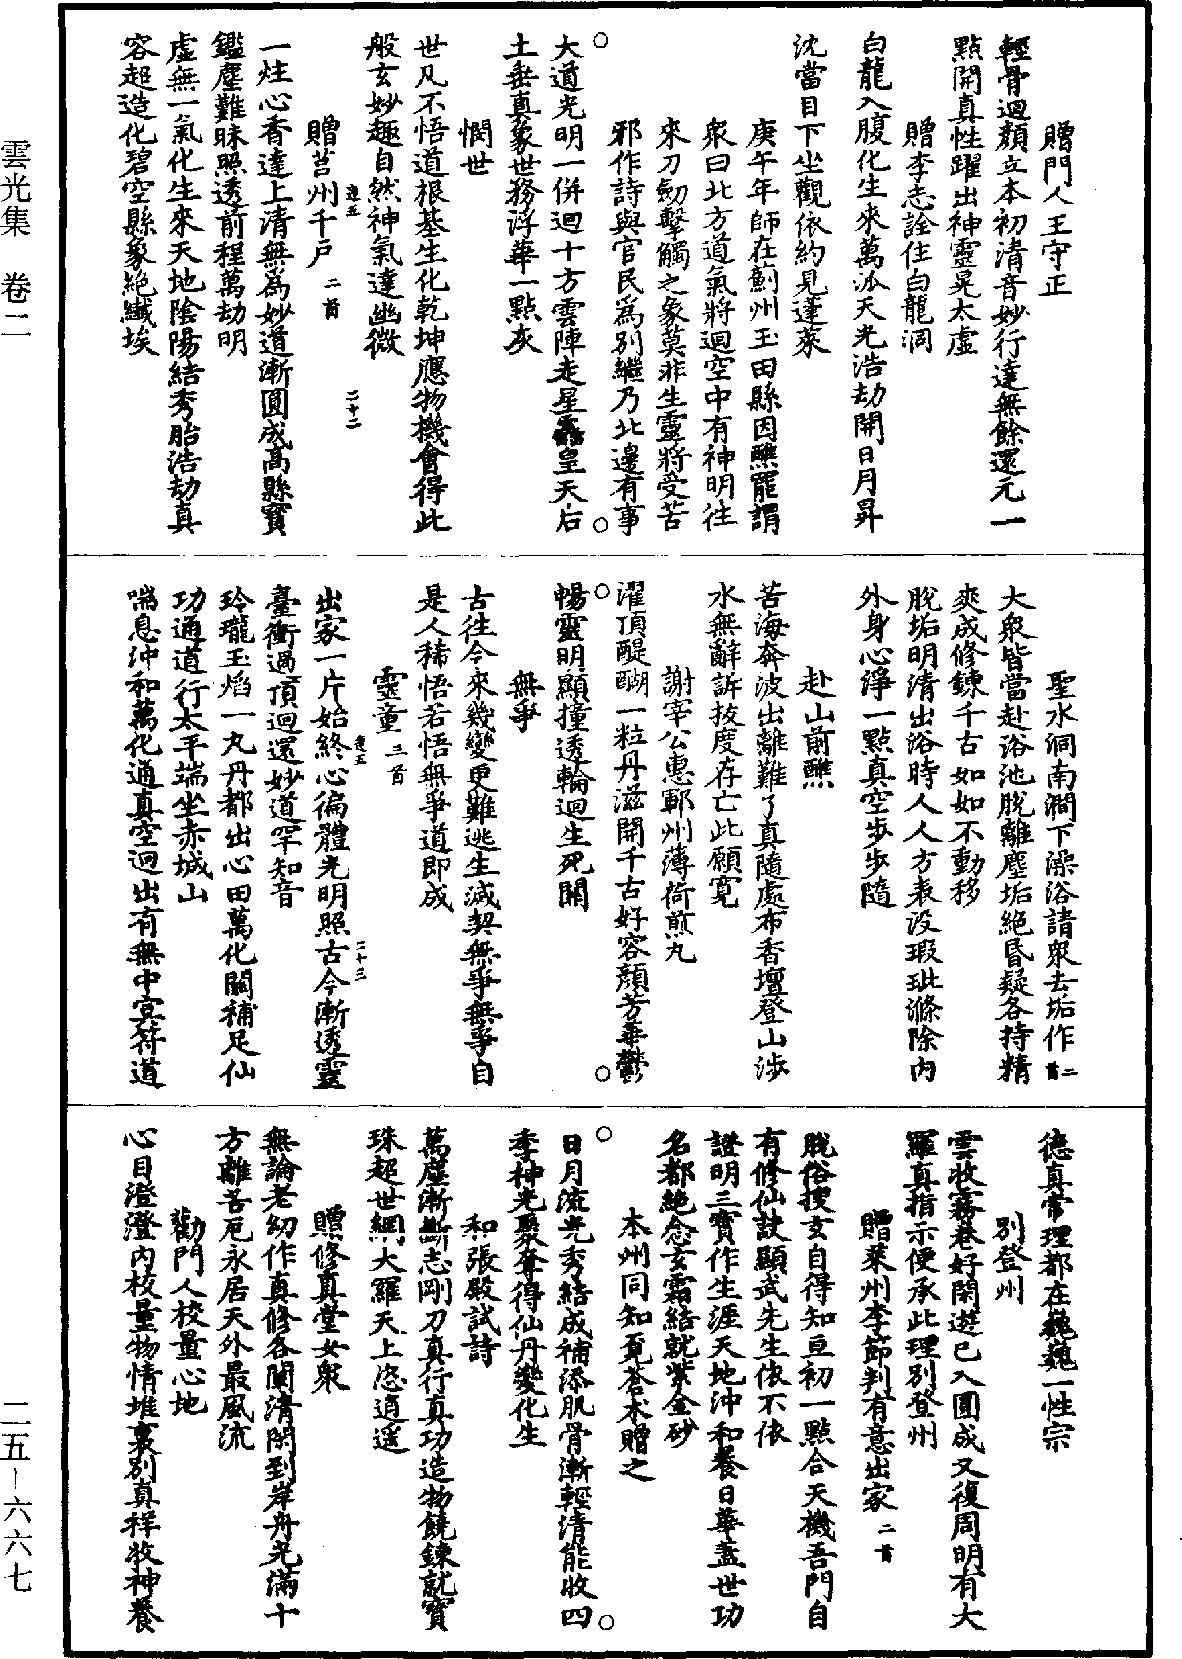 贈門人王守正
輕骨迴顏立本初清音妙行達無餘還元一
點開真性躍出神靈晃太虛
贈李志詮住白龍洞
白龍入腹化生來萬派天光浩劫開日月昇
沈當目下坐觀依約見蓬萊
庚午年師在薊州玉田縣因醮罷謂
衆曰北方道氣將迴空中有神明往
來刀劒擊觸之象莫非生靈將受苦
邪作詩與官民爲別繼乃北邊有事
大道光明一併迴十方雲陣走星皇天后
土垂真象世務浮華一點灰
憫世
世凡不悟道根基生化乾坤應物機會得此
般玄妙趣自然神氣達幽微
贈莒州千戶 二首
一炷心香達上清無爲妙道漸圓成高縣寶
鑑塵難昧照透前程萬劫明
虛無一氣化生來天地陰陽結秀胎浩劫真
容超造化碧空縣象絕纖埃
聖水洞南澗下澡浴請衆去垢作 二首
大衆皆當赴浴池脫離塵垢絕昏疑各持精
爽成修鍊千古如如不動移
脫垢明清出浴時人人方表沒瑕玼滌除內
外身心淨一點真空步步隨
赴山前醮
苦海奔波出離難了真隨處布香壇登山涉
水無辭訴拔度存亡此願寬
謝宰公惠鄆州薄荷煎丸
濯頂醍醐一粒丹滋開千古好容顏芳華鬱
暢靈明顯撞透輪迴生死關
無爭
古往今來幾變更難逃生滅契無爭無爭自
是人稀悟若悟無爭道即成
靈童 三首
出家一片始終心徧體光明照古今漸透靈
臺衝過頂迴還妙道罕知音
玲瓏玉焰一丸丹都出心田萬化關補足仙
功通道行太平端坐赤城山
喘息沖和萬化通真空迥出有無中冥符道
德真常理都在巍巍一性宗
別登州
雲收霧卷好閑遊已入圓成又復周明有大
羅真指示便承此理別登州
贈萊州李節判有意出家 二首
脫俗搜玄自得知亘初一點合天機吾門自
有修仙訣顯武先生依不依
證明三寶作生涯天地沖和養日華蓋世功
名都絕念玄霜結就紫金砂
本州同知覓蒼朮贈之
日月流光秀結成補添肌骨漸輕清能收四
季神光聚奪得仙丹變化生
和張殿試詩
萬塵漸斷志剛刀真行真功造物饒鍊就寶
珠超世網大羅天上恣逍遙
贈修真堂女衆
無論老幼作真修各闡清閑到岸舟光滿十
方離苦厄永居天外最風流
勸門人校量心地
心目澄澄內校量物情堆裏別真祥收神養
雲光集 卷二
二五－六六七